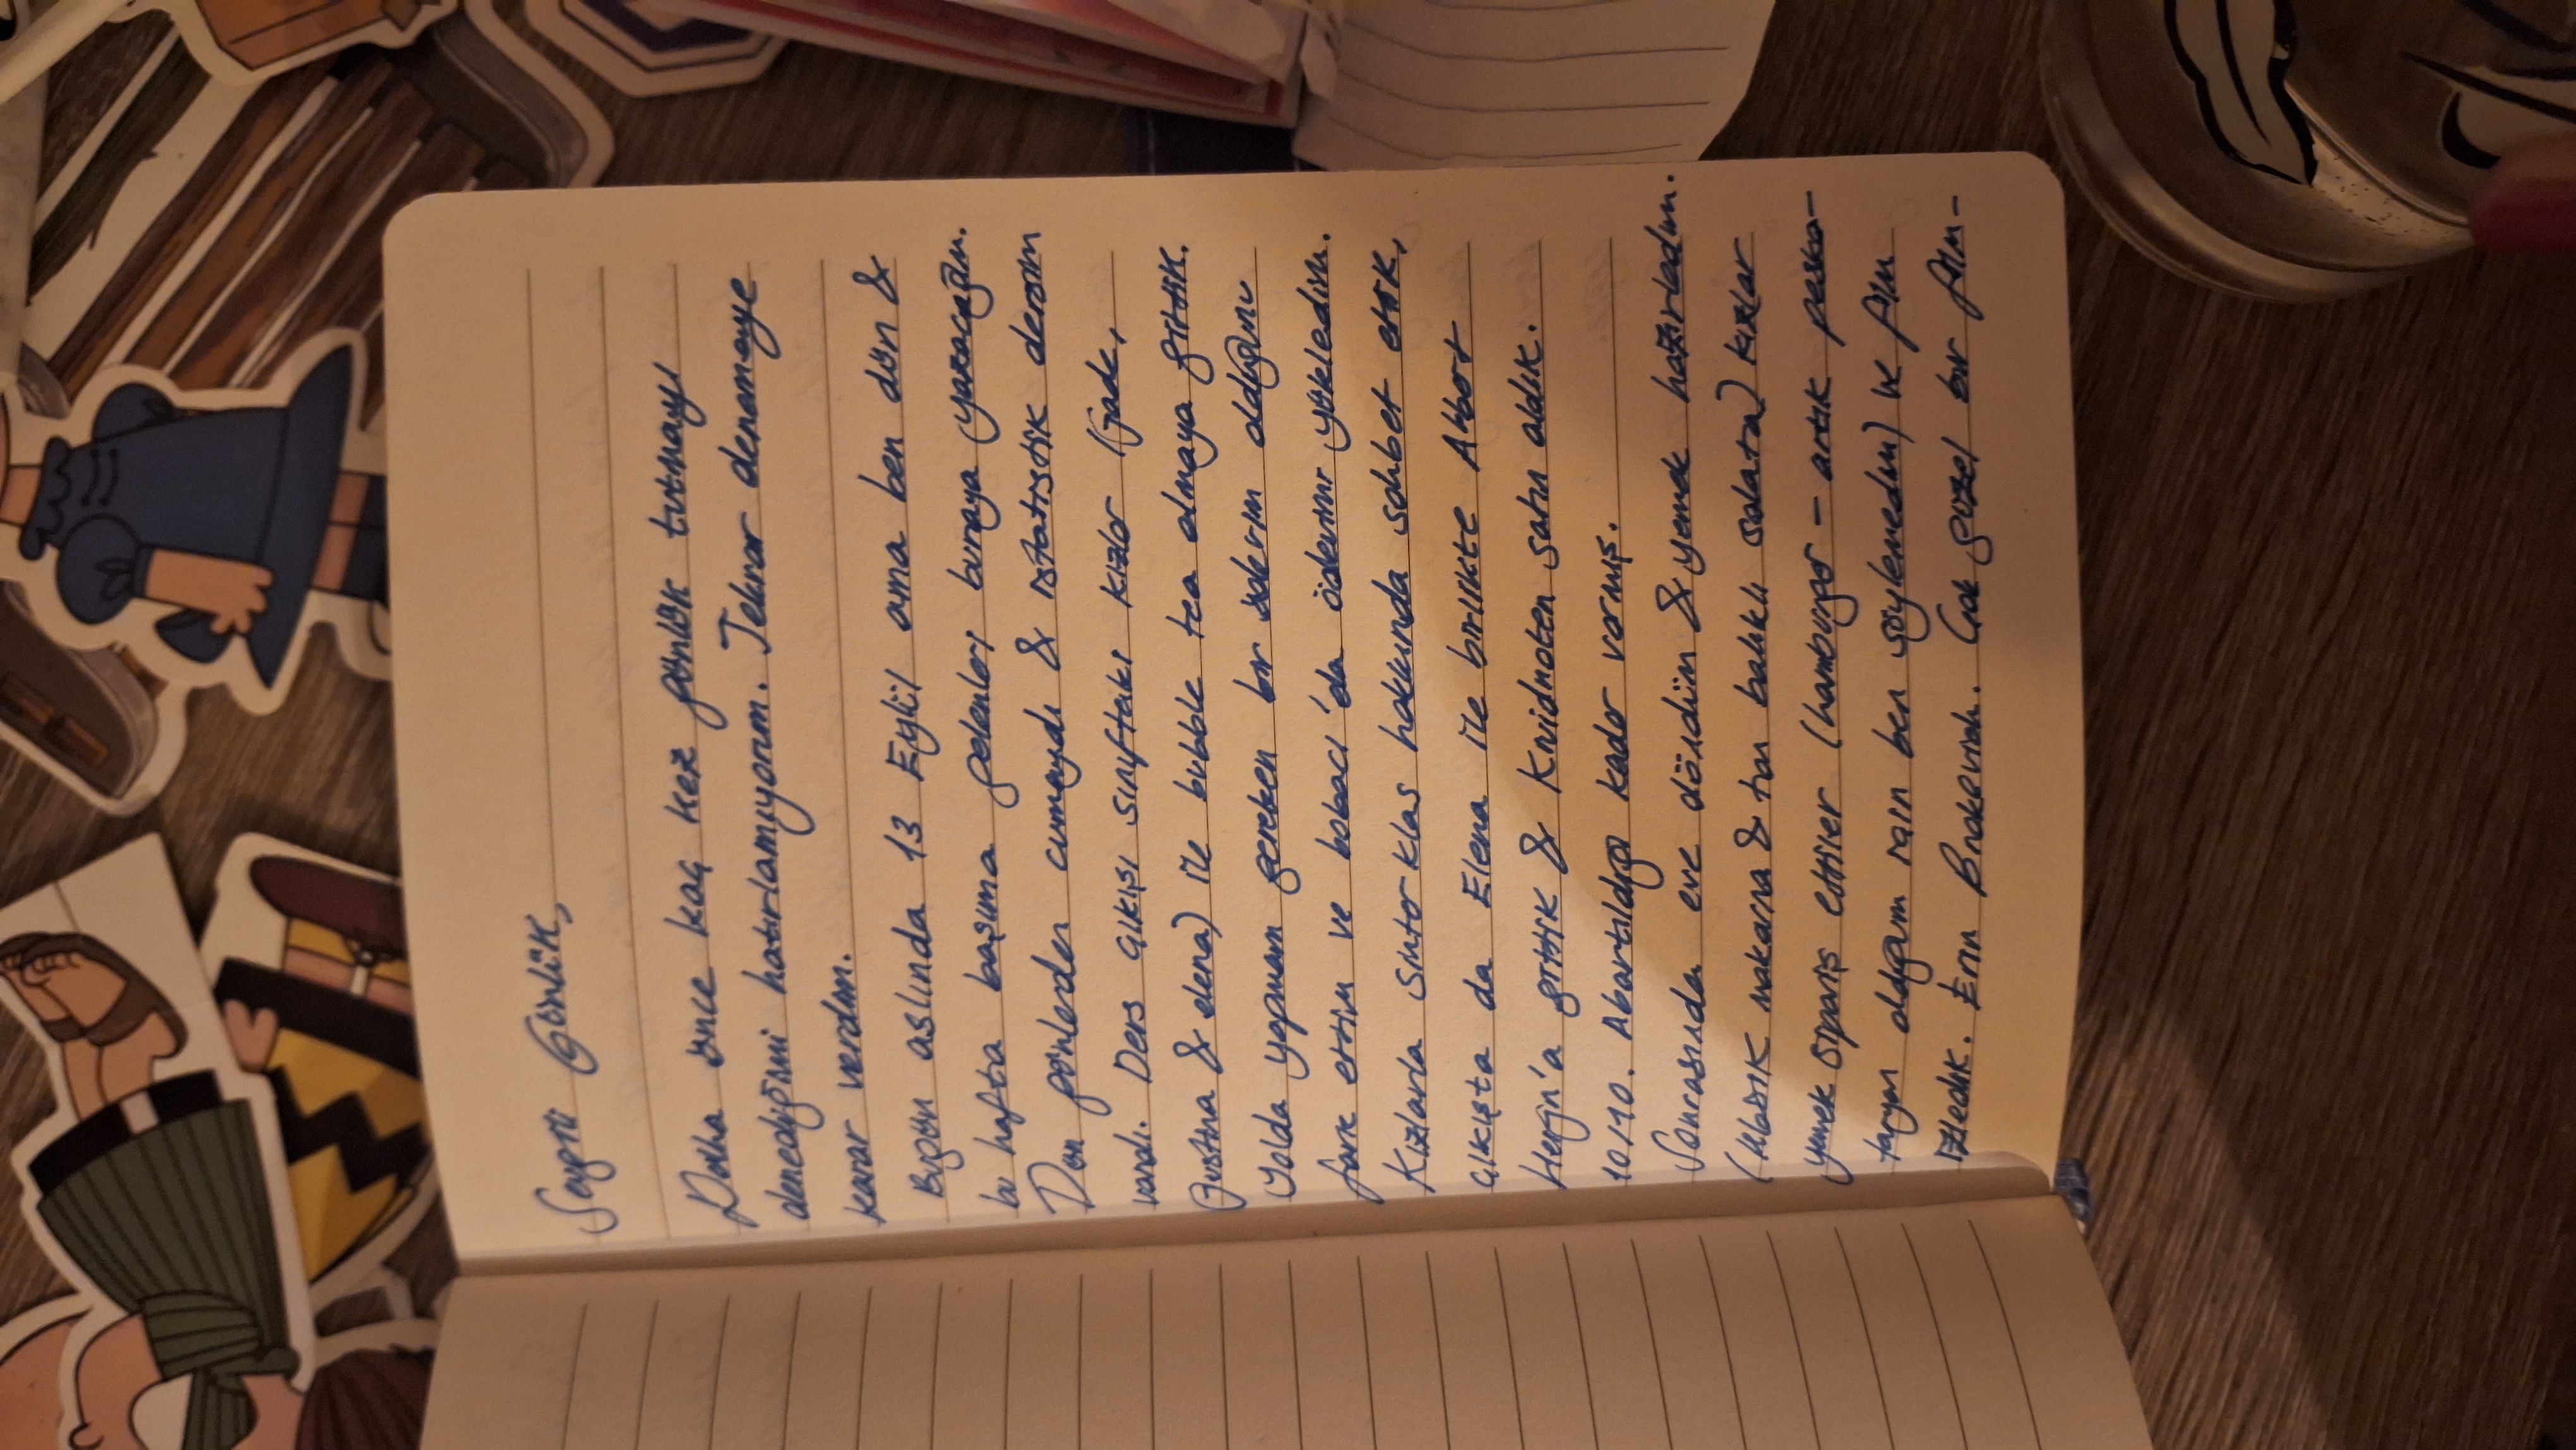 Sevgili Günlük,
Daha önce kaç kez günlük tutmayı
denediğimi hatırlamıyorum. Tekrar denemeye
karar verdim.
Bugün aslında 13 Eylül ama ben dün &
bu hafta başıma gelenleri buraya yazacağım.
Dün günlerden cumaydı & istatistik dersim
vardı. Ders çıkışı sınıftaki kızlar (Jade,
Justina & elena) ile bubble tea almaya gittik.
Yolda yapmam gereken bir ödevim olduğunu
fark ettim ve bobacı'da ödevimi yükledim.
Kızlarla sinterklas hakkında sohbet ettik,
çıkışta da Elena ile birlikte Albert
Heijn'a gittik & Kruidnoten satın aldık.
10/10. Abartıldığı kadar varmış.
Sonrasında eve döndüm & yemek hazırladım.
(klasik makarna & ton balıklı salata) kızlar
yemek sipariş ettiler (hamburger - artık peske-
taryan olduğum için ben söylemedim) ve film
izledik. Erin Brockovich. Çok güzel bir film-